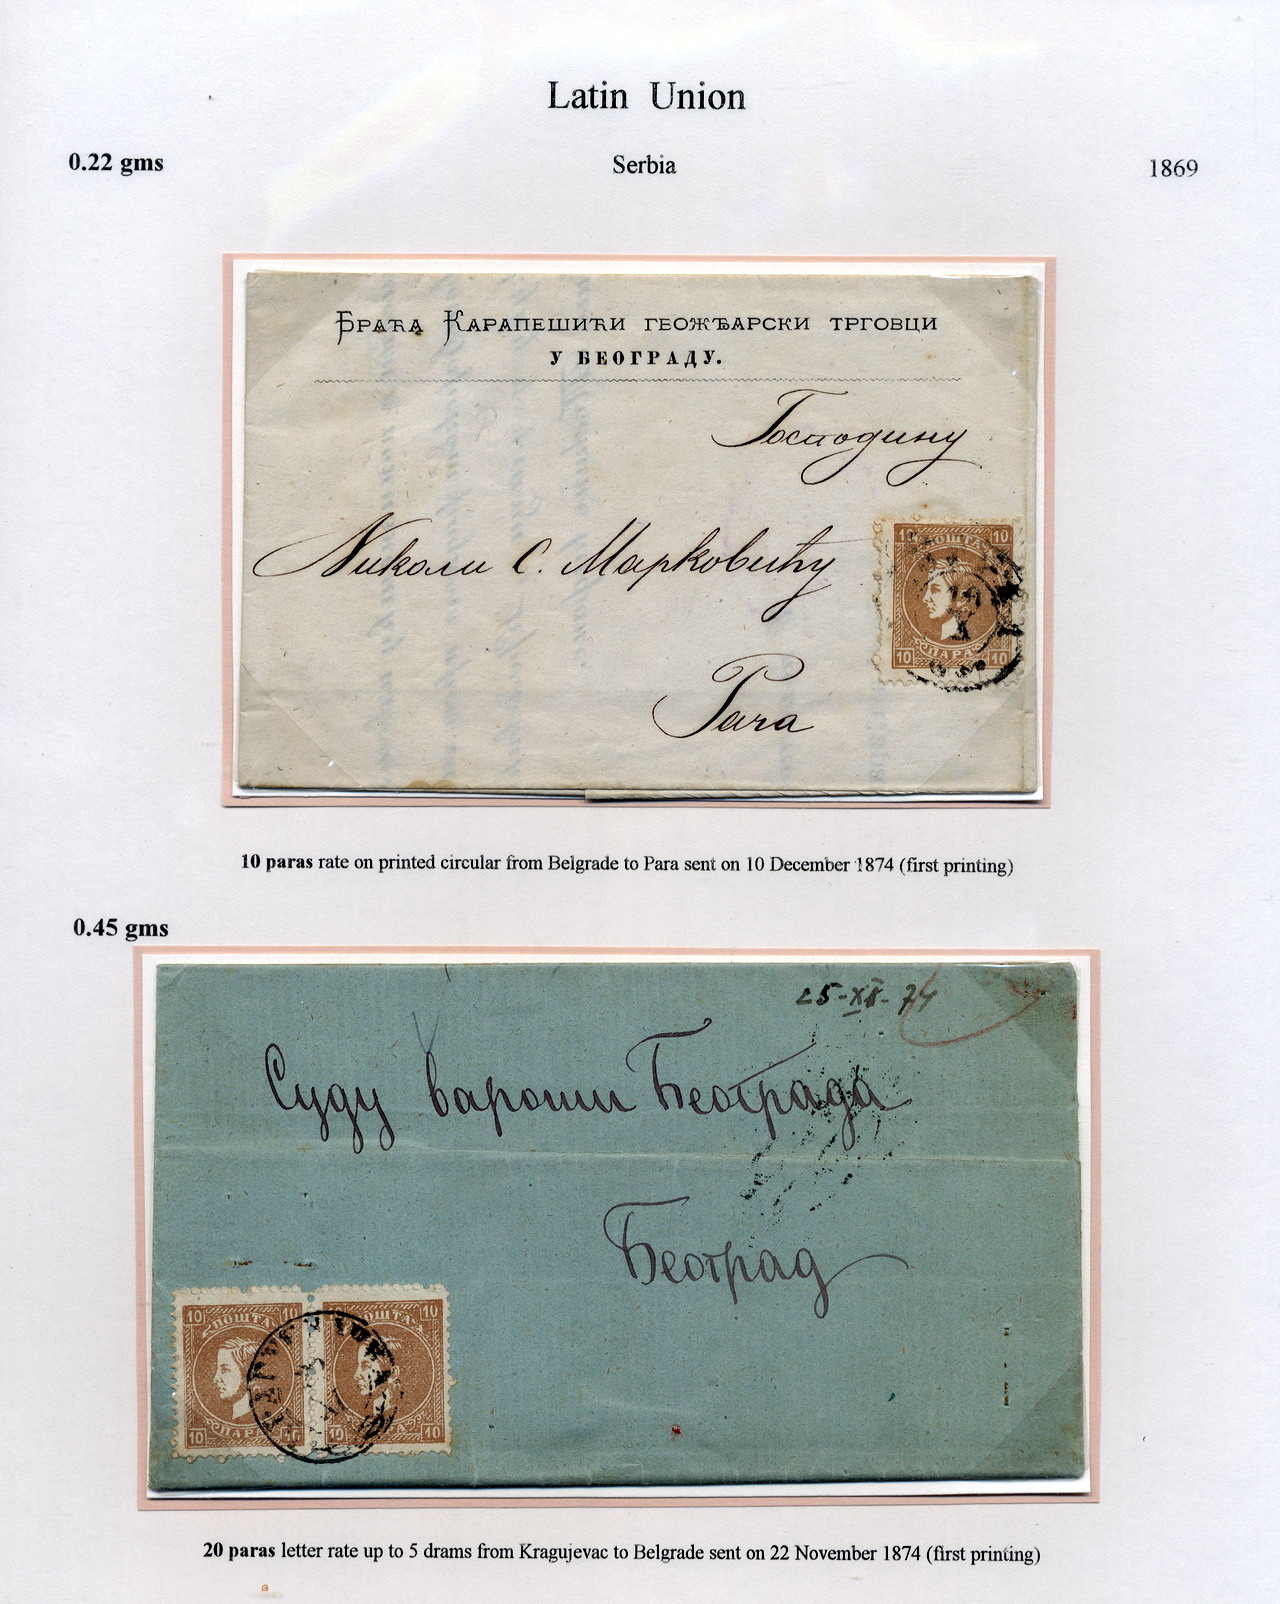 Latin Union
0.22 gms
Serbia
1869
Браћа Карапешићи гвожђарски трговци
у Београду.
Господину
Николи С. Марковићу
10 10
ПОШТА
ПАРА
10 10
Рача
10 paras rate on printed circular from Belgrade to Para sent on 10 December 1874 (first printing)
0.45 gms
25-XI-74
Суду вароши Београда
Београд
10 10 10
ПОШТА ПОШТА
ПАРА ПАРА
10 10 10 10
20 paras letter rate up to 5 drams from Kragujevac to Belgrade sent on 22 November 1874 (first printing)